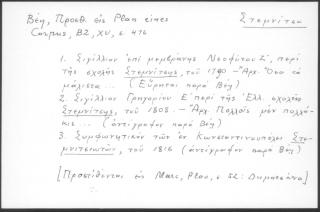 Βέη, Προσθ. εἰς Plan eines Στεμνίτσα
Corpus, ΒΖ, XV, σ 476
1. Σιγίλλιον ἐπὶ μεμβράνης Νεοφύτου Ζ΄, περὶ
τῆς σχολῆς Στεμνίτσης, τοῦ 1790 – "Ἀρχ. Ὅσα τὰ
μάλιστα ... (Εὕρηται παρὰ Βέῃ)
2. Σιγίλλιον Γρηγορίου Ε΄ περὶ τῆς Ἑλλ. σχολῆς
Στεμνίτσης, τοῦ 1808. – "Ἀρχ. Πολλοῖς μὲν πολλά-
κις ... (ἀντίγραφον παρὰ Βέῃ)
3. Συμφωνητικὸν τῶν ἐν Κωνσταντινουπόλει Στε-
μνιτσιωτῶν, τοῦ 1816 (ἀντίγραφον παρὰ Βέῃ)
[Προστίθενται εἰς Marc, Plan, σ 52: Δημητσάνα]